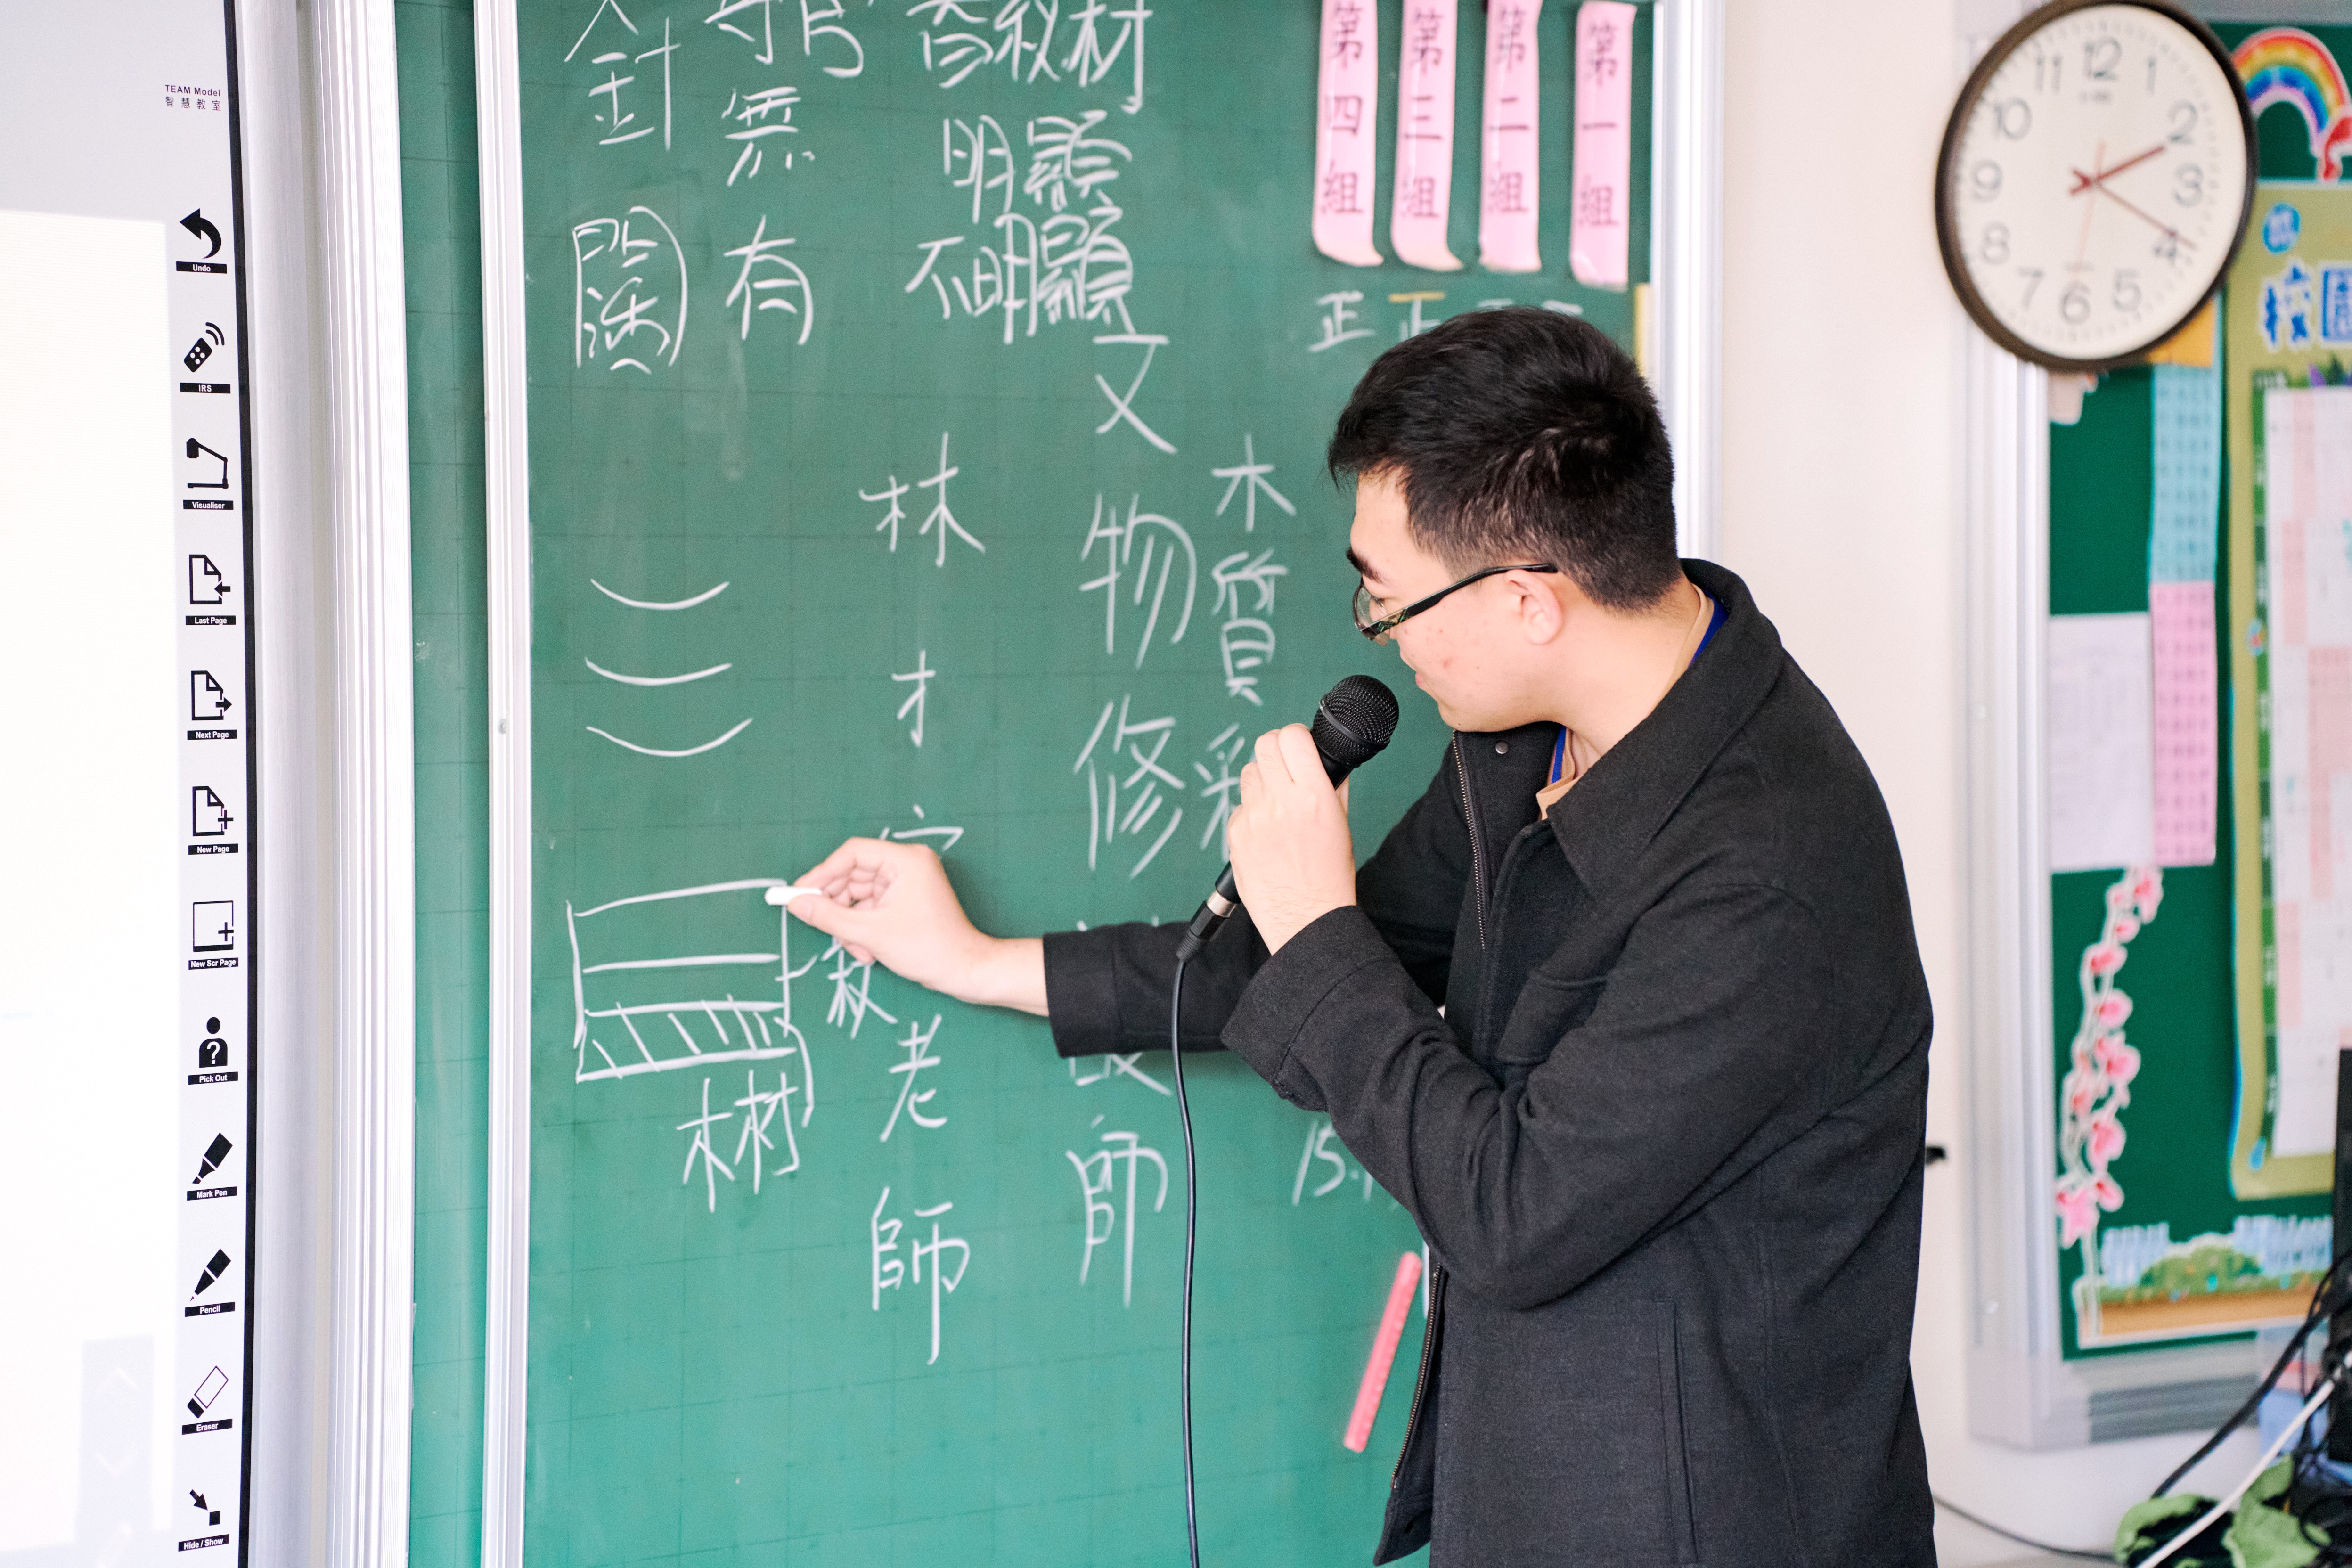 TEAM Model
智慧教室
Undo
IRS
Visualiser
Last Page
Next Page
New Page
New Scr Page
Pick Out
Mark Pen
Pencil
Eraser
Hide / Show
針
闊
無
有
材
明顯
不明顯
林
才
老師
文物修
師
木質彩
15.
第四組
第三組
第二組
第一組
正
正
12
1
2
3
4
5
6
7
8
9
10
11
校園